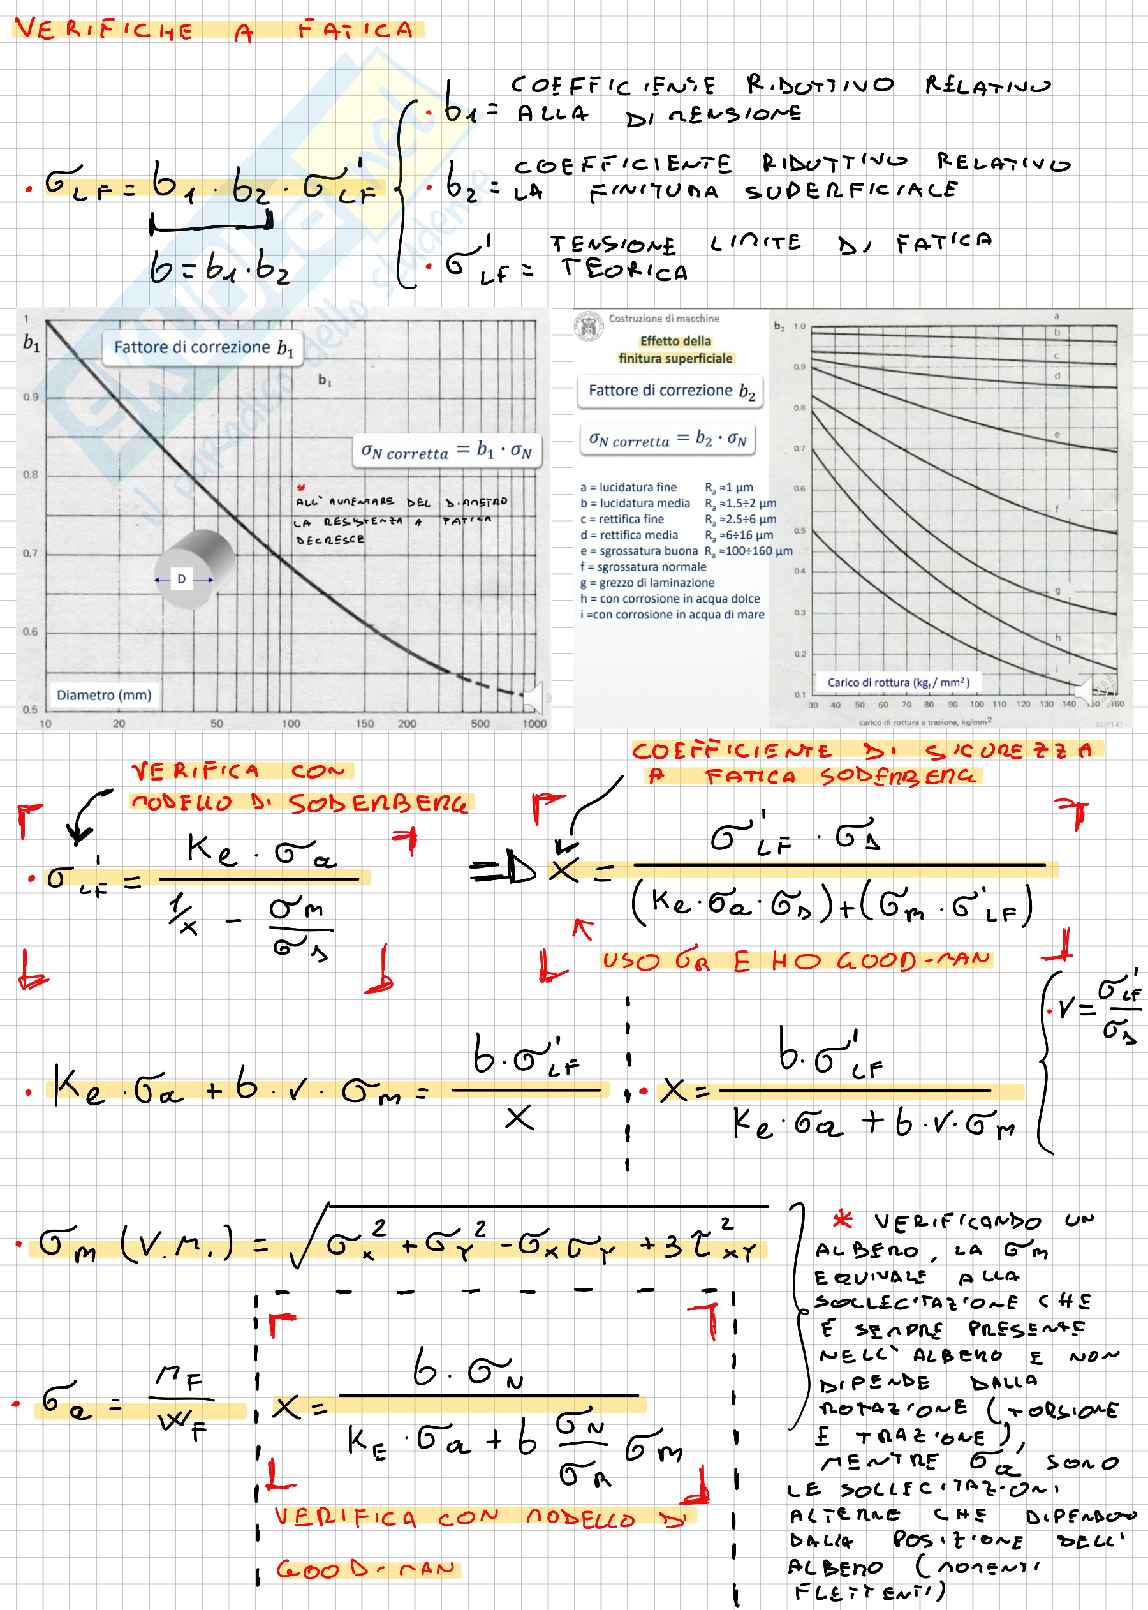 VERIFICHE A FATICA
· σLF = b1 · b2 · σ'LF
b = b1 · b2
· b1 = COEFFICIENTE RIDUTTIVO RELATIVO
ALLA DIMENSIONE
· b2 = COEFFICIENTE RIDUTTIVO RELATIVO
LA FINITURA SUPERFICIALE
· σ'LF = TENSIONE LIMITE DI FATICA
TEORICA
SKUOLA.net
il paradiso dello studente
1
b1
0.9
0.8
0.7
0.6
0.5
Fattore di correzione b1
b1
σN corretta = b1 · σN
* ALL'AUMENTARE DEL DIAMETRO
LA RESISTENZA A FATICA
DECRESCE
D
Diametro (mm)
10 20 50 100 150 200 500 1000
Costruzione di macchine
Effetto della
finitura superficiale
Fattore di correzione b2
σN corretta = b2 · σN
a = lucidatura fine Ra ≈1 μm
b = lucidatura media Ra ≈1.5÷2 μm
c = rettifica fine Ra ≈2.5÷6 μm
d = rettifica media Ra ≈6÷16 μm
e = sgrossatura buona Ra ≈100÷160 μm
f = sgrossatura normale
g = grezzo di laminazione
h = con corrosione in acqua dolce
i =con corrosione in acqua di mare
b2 1.0
0.9
0.8
0.7
0.6
0.5
0.4
0.3
0.2
0.1
a
b
c
d
e
f
g
h
i
Carico di rottura (kgf/ mm²)
30 40 50 60 70 80 90 100 110 120 130 140 150 160
carico di rottura a trazione, kg/mm²
VERIFICA CON
MODELLO DI SODERBERG
· σ'LF = Ke · σa / (1/x - σm/σs)
COEFFICIENTE DI SICUREZZA
A FATICA SODERBERG
=> X = σ'LF · σs / ((Ke · σa · σs) + (σm · σ'LF))
USO σR E HO GOOD-MAN
· V = σ'LF / σs
· Ke · σa + b · V · σm = b · σ'LF / X
· X = b · σ'LF / (Ke · σa + b · V · σm)
· σm (V.M.) = √(σx² + σY² - σxσY + 3τ²xY)
· σa = MF / WF
X = b · σN / (KE · σa + b σN/σR σm)
VERIFICA CON MODELLO DI
GOOD-MAN
* VERIFICANDO UN
ALBERO, LA σm
EQUIVALE ALLA
SOLLECITAZIONE CHE
È SEMPRE PRESENTE
NELL'ALBERO E NON
DIPENDE DALLA
ROTAZIONE (TORSIONE
E TRAZIONE),
MENTRE σa SONO
LE SOLLECITAZIONI
ALTERNE CHE DIPENDONO
DALLA POSIZIONE DELL'
ALBERO (MOMENTI
FLETTENTI)